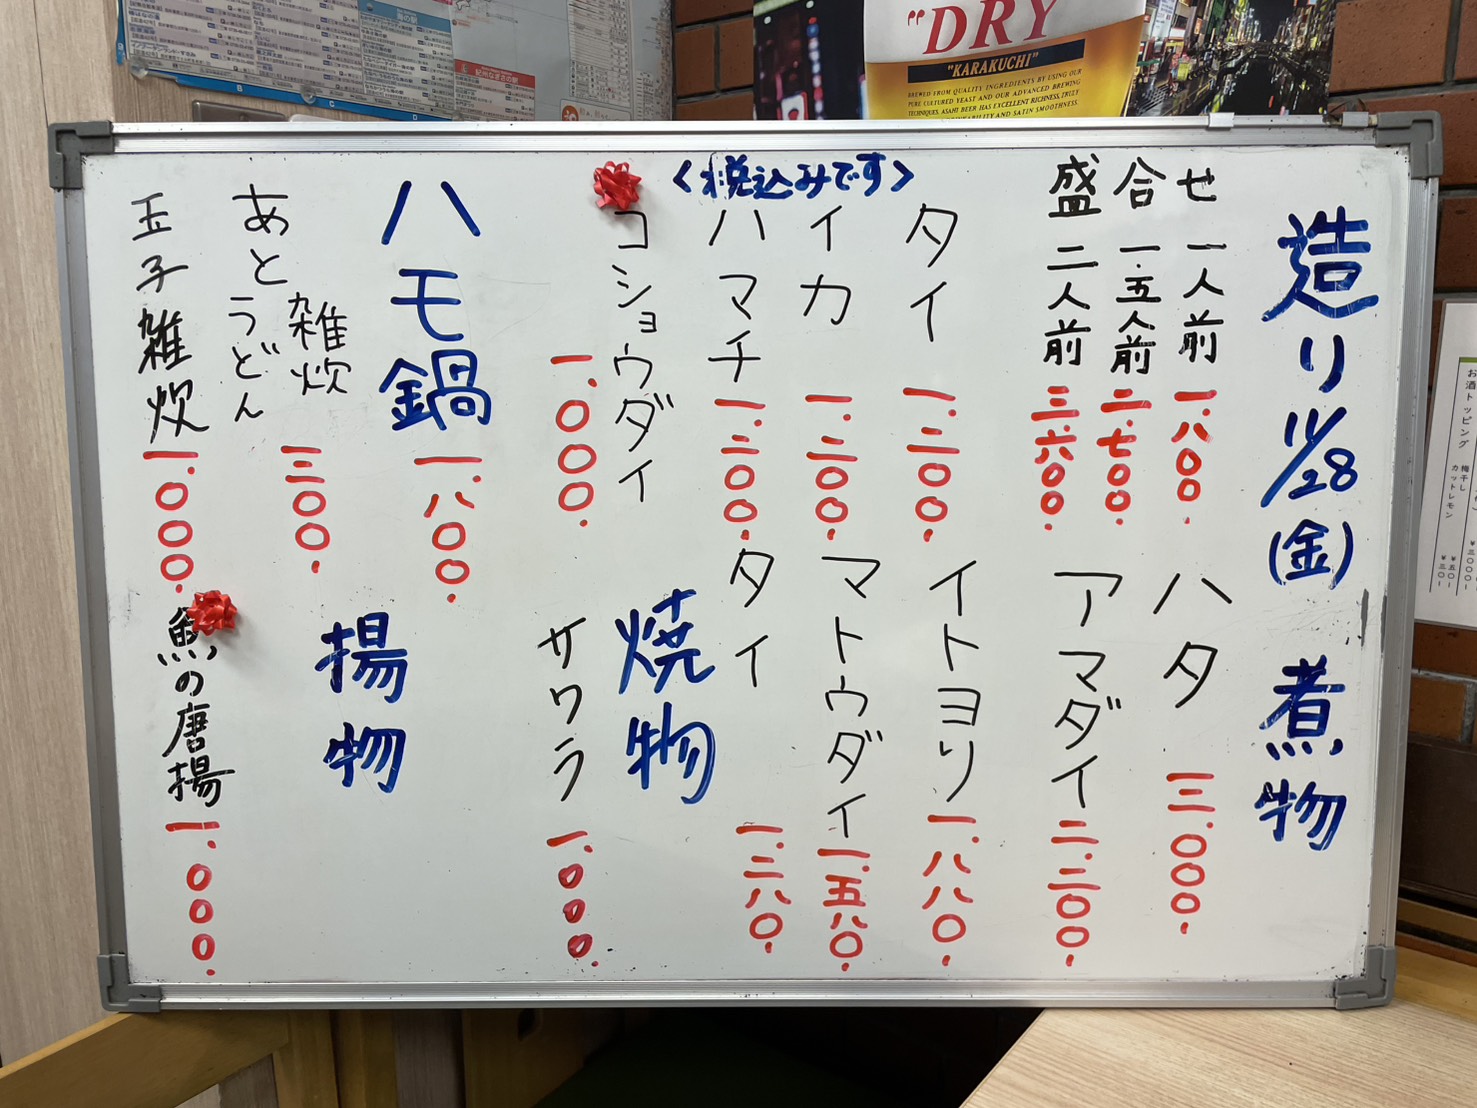 "DRY
"KARAKUCHI"
BREWED FROM QUALITY INGREDIENTS BY USING OUR
PURE CULTURED YEAST AND OUR ADVANCED BREWING
TECHNIQUES. ASAHI BEER HAS EXCELLENT RICHNESS, TRULY
AND SATIN SMOOTHNESS.
紀州なぎさの駅
<税込みです>
造り 11/28(金)
盛合せ
一人前 一.八〇〇.
一.五人前 二.七〇〇.
二人前 三.六〇〇.
タイ 一.二〇〇.
イカ 一.二〇〇.
ハマチ 一.二〇〇.
コショウダイ 一.〇〇〇.
ハモ鍋 一.八〇〇.
あと雑炊
うどん 三〇〇.
玉子雑炊 一.〇〇〇.
煮物
ハタ 三.〇〇〇.
アマダイ 二.二〇〇.
イトヨリ 一.八八〇.
マトウダイ 一.五八〇.
タイ 一.二八〇.
焼物
サワラ 一.〇〇〇.
揚物
魚の唐揚 一.〇〇〇.
お酒トッピング
梅干し
カットレモン
¥三〇〇〇-
¥五〇-
¥三〇-